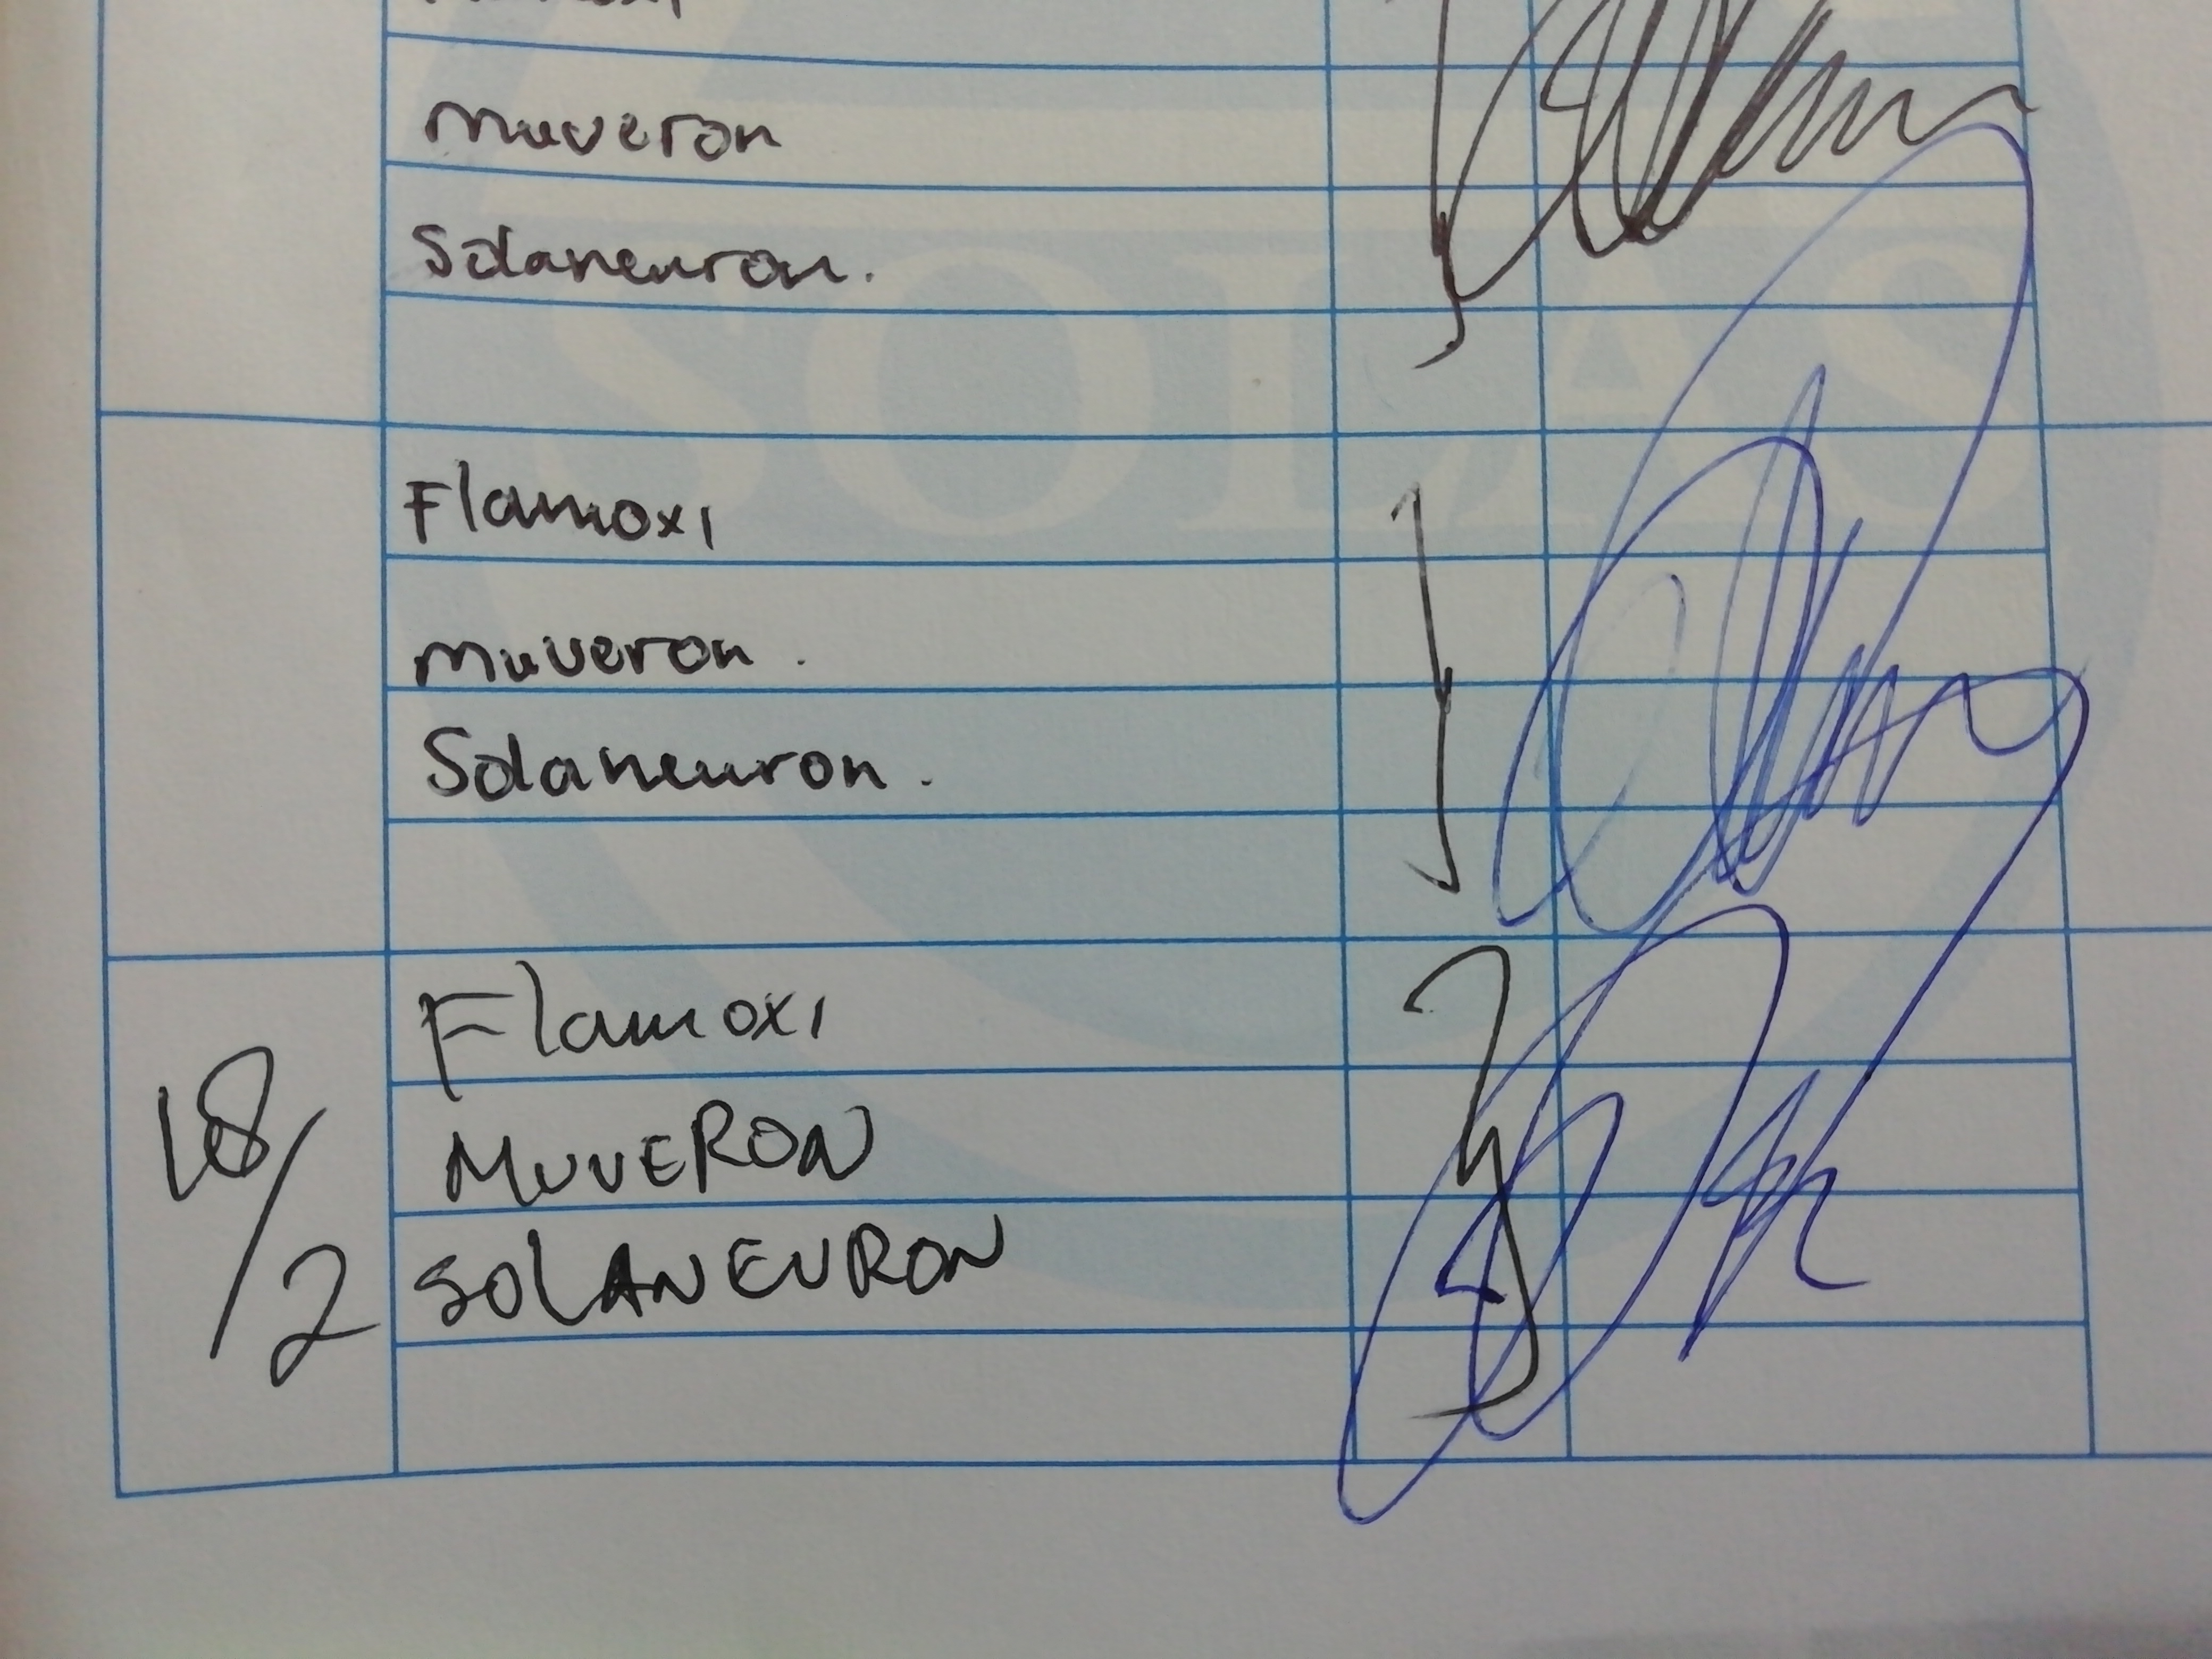 Muveron
Solaneuron.
Flamoxi
Muveron.
Solaneuron.
18/2
Flamoxi
MUVERON
SOLANEURON
SOLAS